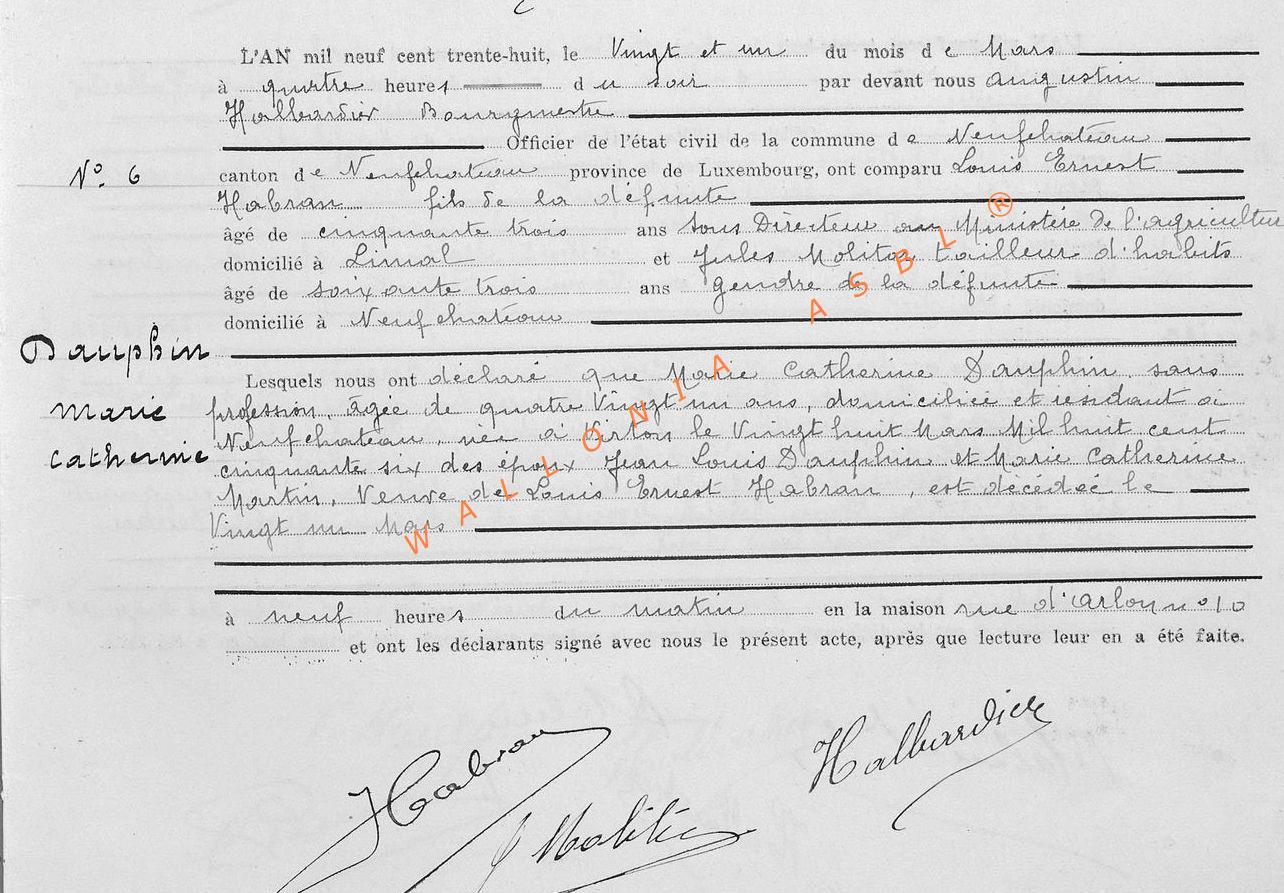 L'AN mil neuf cent trente-huit, le Vingt et un du mois de Mars
à quatre heures du soir par devant nous Augustin
Halbardier Bourgmestre
Officier de l'état civil de la commune de Neufchateau
No 6 canton de Neufchateau province de Luxembourg, ont comparu Louis Ernest
Habran fils de la défunte
âgé de cinquante trois ans Sous Directeur au Ministère de l'agriculture
domicilié à Limal et Jules Molitor tailleur d'habits
âgé de soixante trois ans gendre de la défunte
domicilié à Neufchateau
Dauphin
Marie
Catherine
Lesquels nous ont déclaré que Marie Catherine Dauphin, sans
profession, âgée de quatre Vingt un ans, domiciliée et residant à
Neufchateau, née à Virton le Vingt huit Mars Mil huit cent
cinquante six des époux Jean Louis Dauphin et Marie Catherine
Martin, Veuve de Louis Ernest Habran, est décédée le
Vingt un Mars
à neuf heures du matin en la maison rue d'Arlon no 10
et ont les déclarants signé avec nous le présent acte, après que lecture leur en a été faite.
Habran
Halbardier
J Molitor
WALLONIA ASBL ®